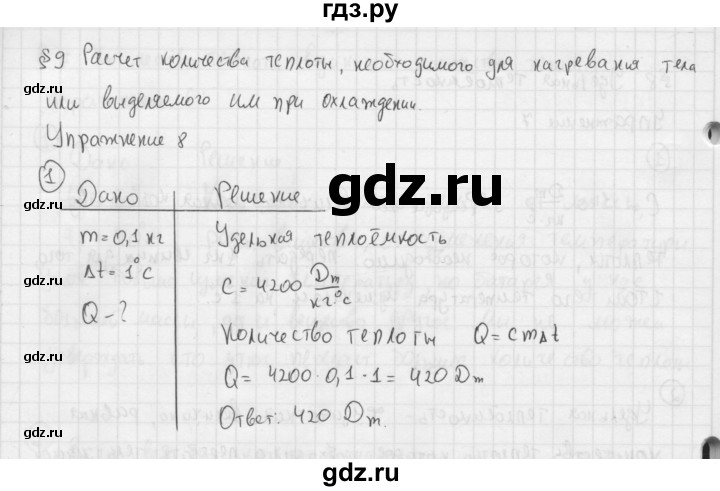 гдз.ру
§9 Расчет количества теплоты, необходимого для нагревания тела
или выделяемого им при охлаждении.
Упражнение 8
1
Дано Решение
m=0,1 кг Удельная теплоёмкость
Δt=1°C
C=4200 Дж/кг°C
Q-?
Количество теплоты Q=cmΔt
Q=4200·0,1·1=420 Дж
Ответ: 420 Дж.
gdz.ru
gdz.ru
gdz.ru
gdz.ru
gdz.ru
gdz.ru
gdz.ru
gdz.ru
gdz.ru
gdz.ru
gdz.ru
gdz.ru